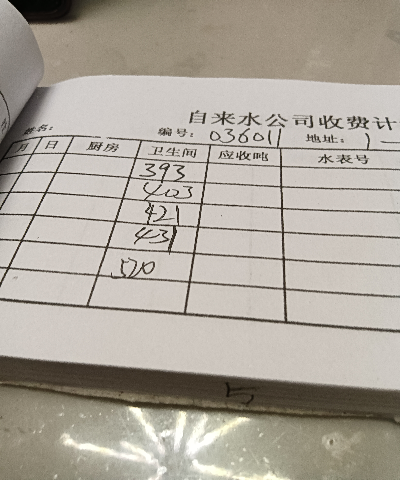 自来水公司收费计
姓名: 编号: 036011 地址: 1
月 日 厨房 卫生间 应收吨 水表号
393
403
421
431
520
5